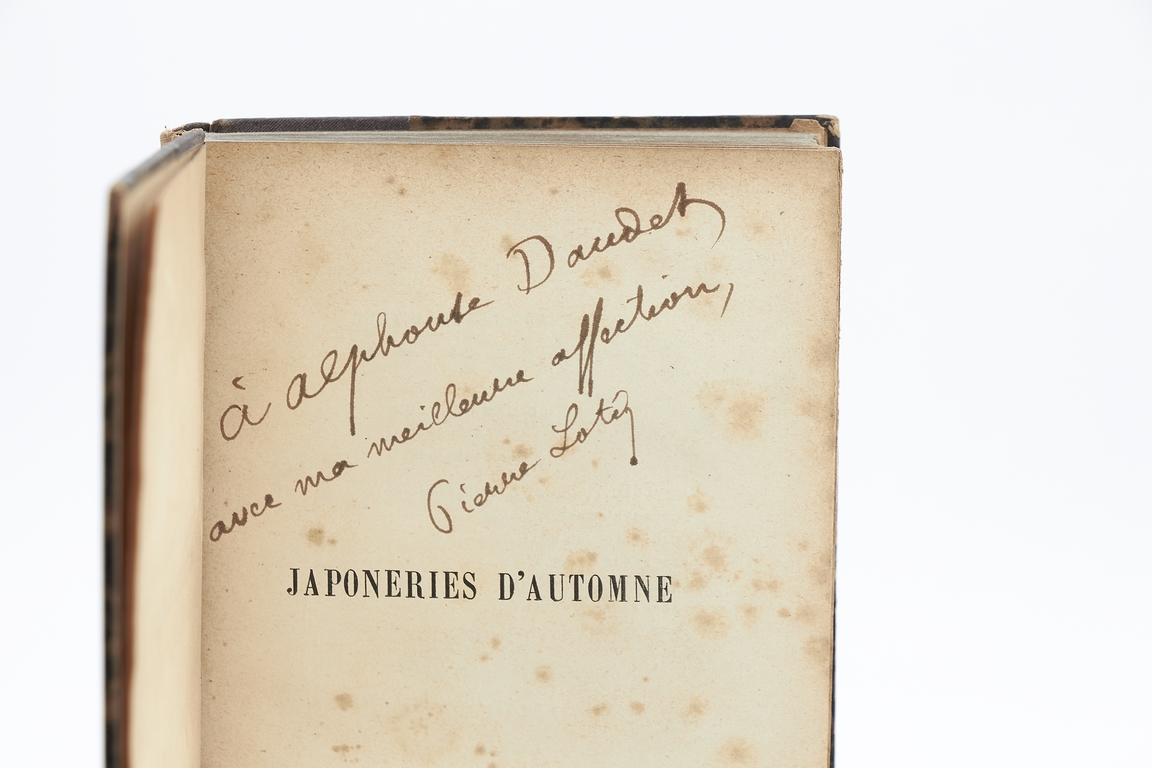 à Alphonse Daudet
avec ma meilleure affection,
Pierre Loti
JAPONERIES D'AUTOMNE